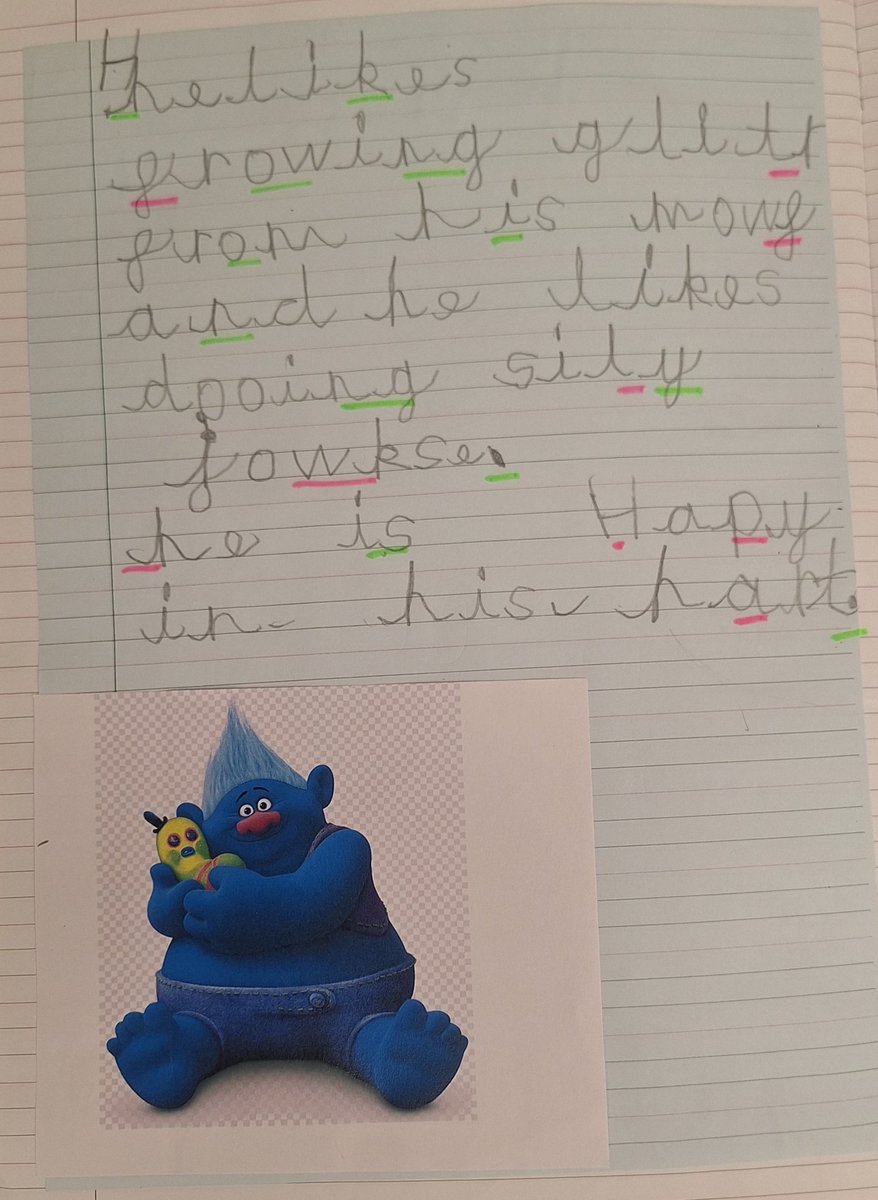 He likes
growing glltt
from his mowf
and he likes
dooing sily
jowkse.
he is Hapy
in his hart.